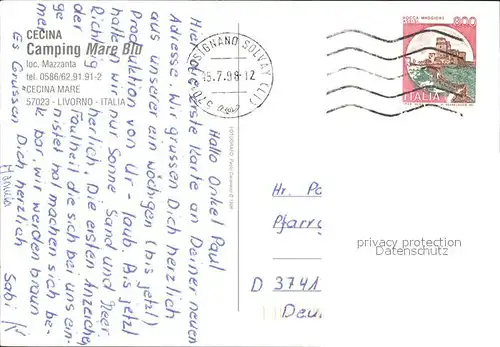 CECINA
Camping Mare Blu
loc. Mazzanta
tel. 0586/62.91.91-2
CECINA MARE
57023 - LIVORNO - ITALIA
Hallo Onkel Paul
Hier die erste Karte an Deiner neuen
Adresse. Wir grüssen Dich herzlich
aus unserer ein wöchigen (bis jetzt)
Produktion von Ur-laub. Bis jetzt
hatten wir nur Sonne Sand und Meer.
Richtig herrlich. Die ersten Anzeichen
der Faulheit die sich bei uns ein-
genistet hat machen sich be-
merk bar, wir werden braun
Es Grüssen Dich herzlich
Sabi
Manuela
ROSIGNANO SOLVAY (LI)
15.7.98-12
800
ITALIA
Hr. Pa
Pfarr
D 3741
Deu
privacy protection
DaMeWe.com